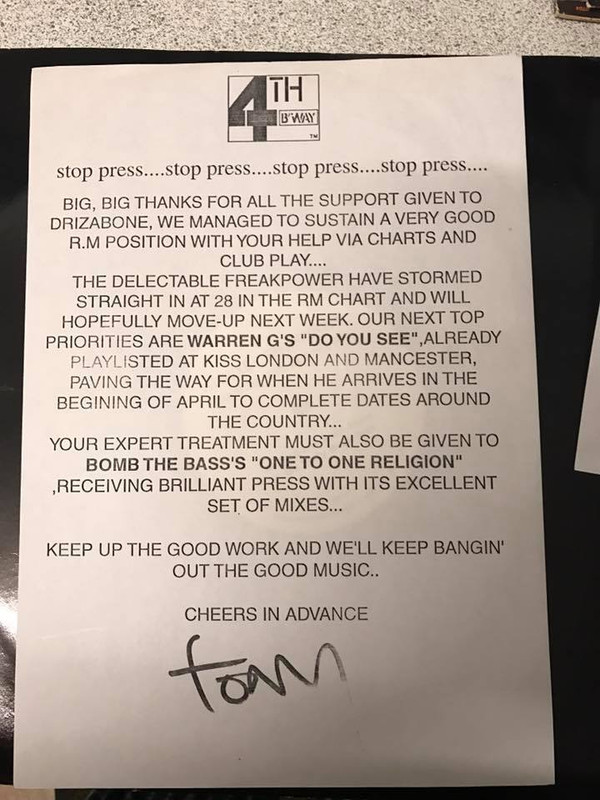 4TH
B'WAY
TM
stop press....stop press....stop press....stop press....
BIG, BIG THANKS FOR ALL THE SUPPORT GIVEN TO
DRIZABONE, WE MANAGED TO SUSTAIN A VERY GOOD
R.M POSITION WITH YOUR HELP VIA CHARTS AND
CLUB PLAY....
THE DELECTABLE FREAKPOWER HAVE STORMED
STRAIGHT IN AT 28 IN THE RM CHART AND WILL
HOPEFULLY MOVE-UP NEXT WEEK. OUR NEXT TOP
PRIORITIES ARE WARREN G'S "DO YOU SEE",ALREADY
PLAYLISTED AT KISS LONDON AND MANCESTER,
PAVING THE WAY FOR WHEN HE ARRIVES IN THE
BEGINING OF APRIL TO COMPLETE DATES AROUND
THE COUNTRY...
YOUR EXPERT TREATMENT MUST ALSO BE GIVEN TO
BOMB THE BASS'S "ONE TO ONE RELIGION"
,RECEIVING BRILLIANT PRESS WITH ITS EXCELLENT
SET OF MIXES...
KEEP UP THE GOOD WORK AND WE'LL KEEP BANGIN'
OUT THE GOOD MUSIC..
CHEERS IN ADVANCE